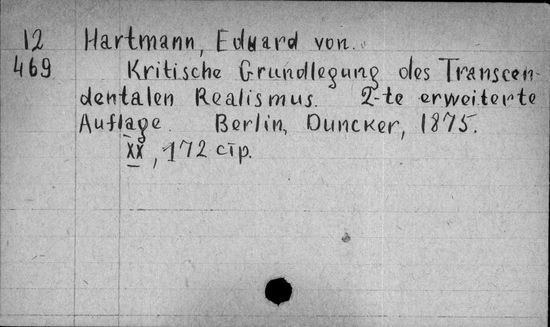 12 Hartmann, Eduard von.
469 Kritische Grundlegung des Transcen-
dentalen Realismus. 2-te erweiterte
Auflage. Berlin, Duncker, 1875.
XX, 172 стр.